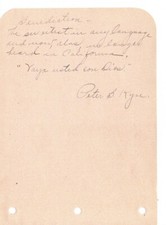 Benediction.
The sweetest in any language
and now, alas, no longer
heard in California.
"Vaya usted con Dios"
Peter B. Kyne